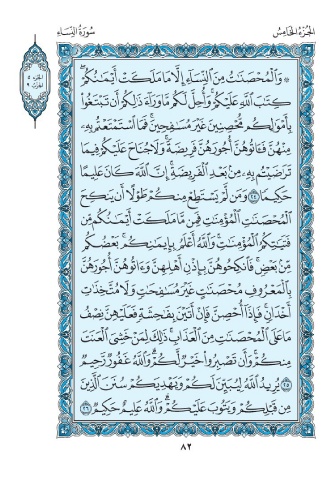 الجزء الخامس
سورة النساء
الجزء ٥
الحزب ٩
۞ وَالْمُحْصَنَاتُ مِنَ النِّسَاءِ إِلَّا مَا مَلَكَتْ أَيْمَانُكُمْ
كِتَابَ اللَّهِ عَلَيْكُمْ وَأُحِلَّ لَكُم مَّا وَرَاءَ ذَٰلِكُمْ أَن تَبْتَغُوا
بِأَمْوَالِكُم مُّحْصِنِينَ غَيْرَ مُسَافِحِينَ فَمَا اسْتَمْتَعْتُم بِهِ
مِنْهُنَّ فَآتُوهُنَّ أُجُورَهُنَّ فَرِيضَةً وَلَا جُنَاحَ عَلَيْكُمْ فِيمَا
تَرَاضَيْتُم بِهِ مِن بَعْدِ الْفَرِيضَةِ إِنَّ اللَّهَ كَانَ عَلِيمًا
حَكِيمًا ٢٤ وَمَن لَّمْ يَسْتَطِعْ مِنكُمْ طَوْلًا أَن يَنكِحَ
الْمُحْصَنَاتِ الْمُؤْمِنَاتِ فَمِن مَّا مَلَكَتْ أَيْمَانُكُم مِّن
فَتَيَاتِكُمُ الْمُؤْمِنَاتِ وَاللَّهُ أَعْلَمُ بِإِيمَانِكُم بَعْضُكُم
مِّن بَعْضٍ فَانكِحُوهُنَّ بِإِذْنِ أَهْلِهِنَّ وَآتُوهُنَّ أُجُورَهُنَّ
بِالْمَعْرُوفِ مُحْصَنَاتٍ غَيْرَ مُسَافِحَاتٍ وَلَا مُتَّخِذَاتِ
أَخْدَانٍ فَإِذَا أُحْصِنَّ فَإِنْ أَتَيْنَ بِفَاحِشَةٍ فَعَلَيْهِنَّ نِصْفُ
مَا عَلَى الْمُحْصَنَاتِ مِنَ الْعَذَابِ ذَٰلِكَ لِمَنْ خَشِيَ الْعَنَتَ
مِنكُمْ وَأَن تَصْبِرُوا خَيْرٌ لَّكُمْ وَاللَّهُ غَفُورٌ رَّحِيمٌ
٢٥ يُرِيدُ اللَّهُ لِيُبَيِّنَ لَكُمْ وَيَهْدِيَكُمْ سُنَنَ الَّذِينَ
مِن قَبْلِكُمْ وَيَتُوبَ عَلَيْكُمْ وَاللَّهُ عَلِيمٌ حَكِيمٌ ٢٦
٨٢